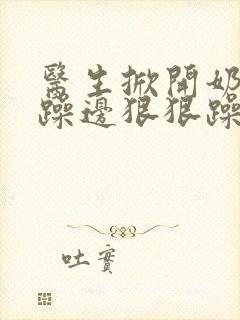 醫生掀開奶
躁邊狠狠躁
吐實